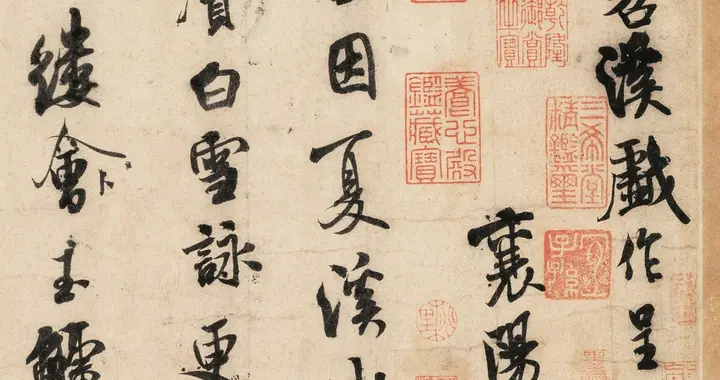 溪戲作呈
襄陽
因夏溪
白雪詠更
縷會玉鱸
乾隆御賞之寶
養心殿鑑藏寶
三希堂精鑑璽
宜子孫